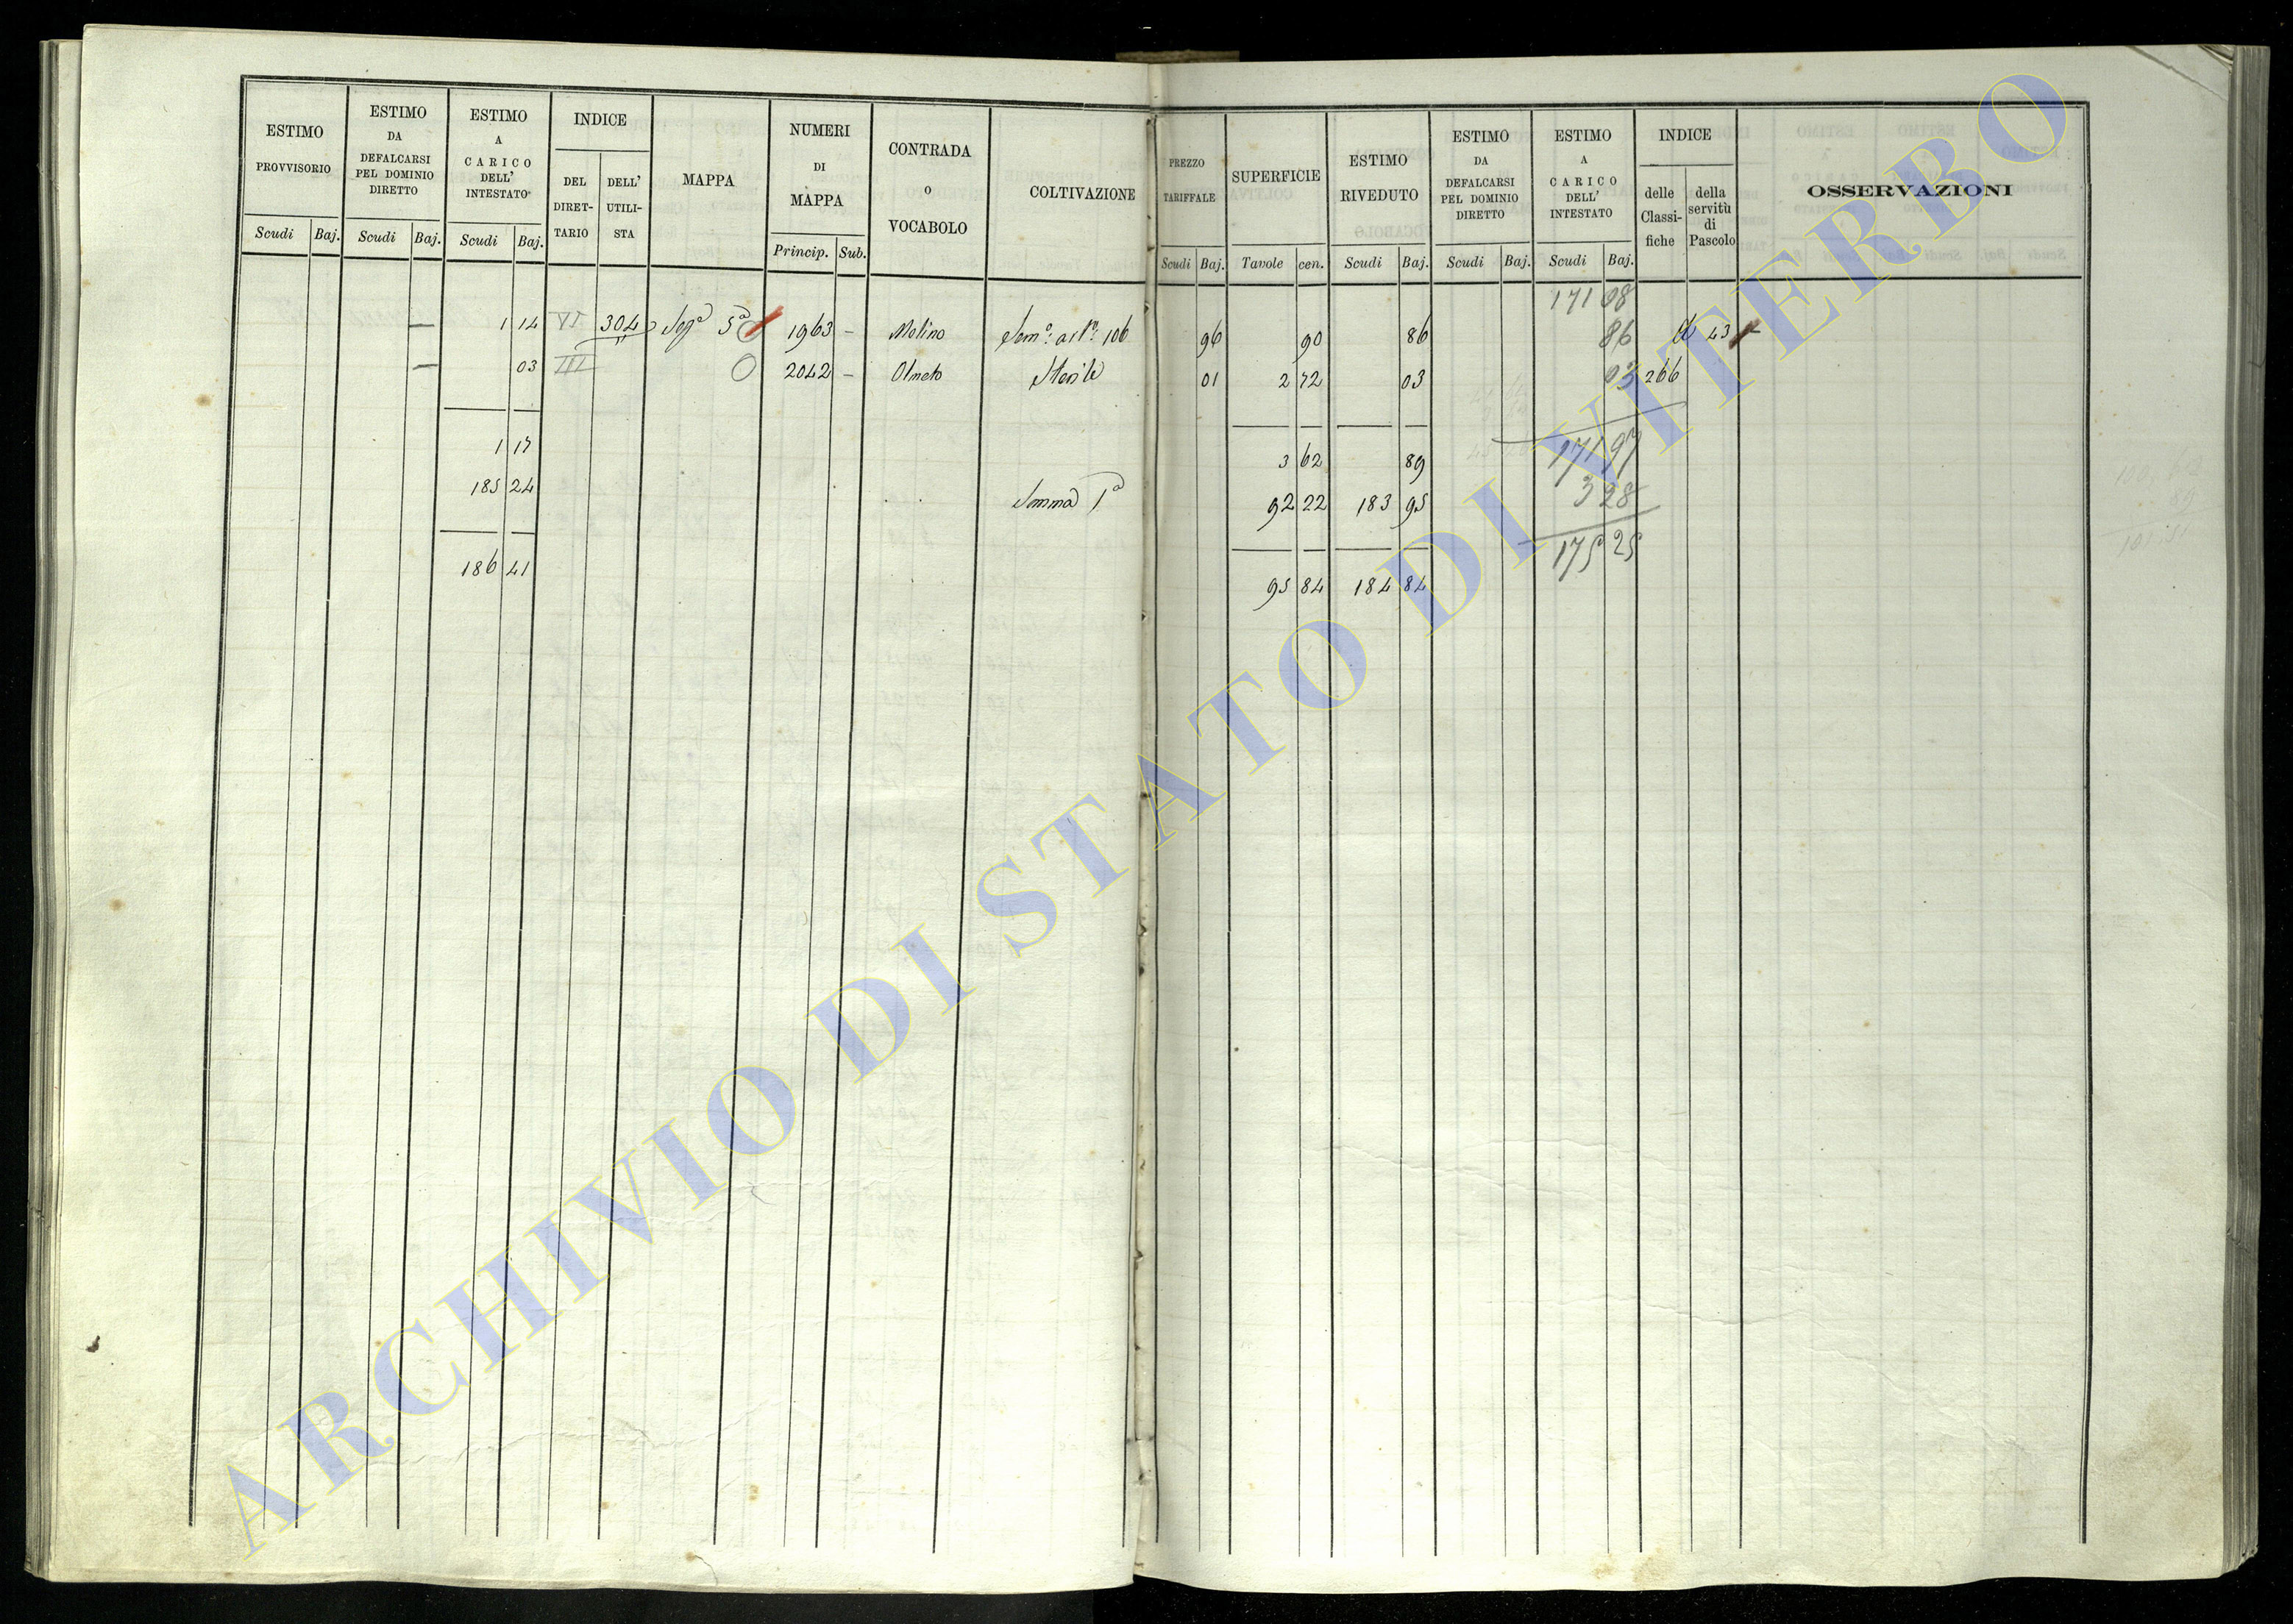 ESTIMO PROVVISORIO
Scudi Baj.
ESTIMO DA DEFALCARSI PEL DOMINIO DIRETTO
Scudi Baj.
ESTIMO A CARICO DELL' INTESTATO
Scudi Baj.
INDICE
DEL DIRET- TARIO
DELL' UTILI- STA
MAPPA
NUMERI DI MAPPA
Princip. Sub.
CONTRADA O VOCABOLO
COLTIVAZIONE
PREZZO TARIFFALE
Scudi Baj.
SUPERFICIE
Tavole cen.
ESTIMO RIVEDUTO
Scudi Baj.
ESTIMO DA DEFALCARSI PEL DOMINIO DIRETTO
Scudi Baj.
ESTIMO A CARICO DELL' INTESTATO
Scudi Baj.
INDICE
delle Classi- fiche
della servitù di Pascolo
OSSERVAZIONI
171 08
— 1 14 304 5ª 1963 – Molino 106 96 90 86 86 43
— 03 III 2042 – Olmeto Sterile 01 2 72 03 03 266
1 17 3 62 89 171 97
185 24 Somma 1ª 92 22 183 95 3 28
186 41 95 84 184 84 175 25
ARCHIVIO DI STATO DI VITERBO